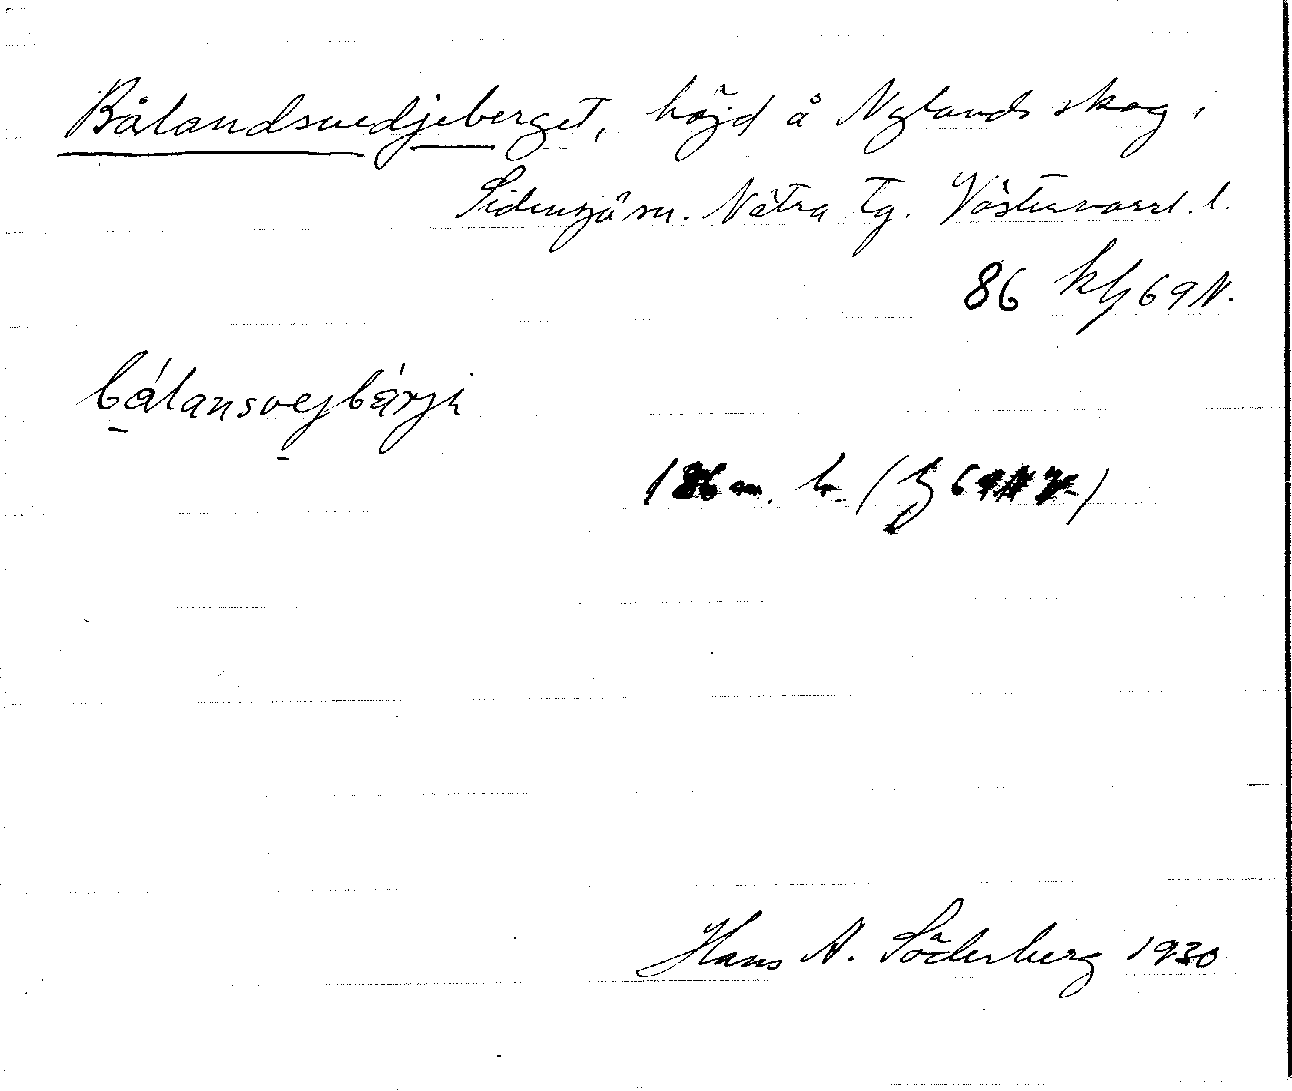 Bålandsvedjeberget, höjd å Nylands skog i
Sidensjö sn. Nätra tg. Västernorrl. l.
86 kbl 69 N.
bálansvejbárji
186 m. h. (bl 69 N
Hans A. Söderberg 1930